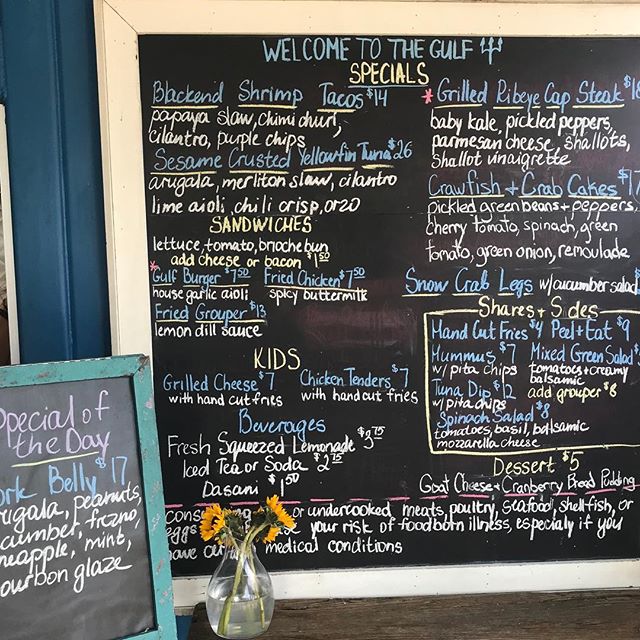 WELCOME TO THE GULF
SPECIALS
Blackend Shrimp Tacos $14
papaya slaw, chimi churi,
cilantro, purple chips
Sesame Crusted Yellowfin Tuna $26
arugala, merliton slaw, cilantro
lime aioli, chili crisp, orzo
SANDWICHES
lettuce, tomato, brioche bun
add cheese or bacon $1.50
* Gulf Burger $7.50
house garlic aioli
Fried Chicken $7.50
spicy buttermilk
Fried Grouper $13
lemon dill sauce
KIDS
Grilled Cheese $7
with hand cut fries
Chicken Tenders $7
with hand cut fries
Beverages
Fresh Squeezed Lemonade $3.75
Iced Tea or Soda $2.75
Dasani $1.50
* Grilled Ribeye Cap Steak
baby kale, pickled peppers,
parmesan cheese, shallots,
shallot vinaigrette
Crawfish + Crab Cakes $17
pickled green beans + peppers,
cherry tomato, spinach, green
tomato, green onion, remoulade
Snow Crab Legs w/cucumber salad
Shares + Sides
Hand Cut Fries $4
Hummus $7
w/ pita chips
Tuna Dip $12
w/ pita chips
Spinach Salad $8
tomatoes, basil, balsamic
mozzarella cheese
Peel + Eat $9
Mixed Green Salad
tomatoes + creamy
balsamic
add grouper $8
Dessert $5
Goat Cheese + Cranberry Bread Pudding
or undercooked meats, poultry, seafood, shellfish, or
eggs your risk of foodborn illness, especialy if you
have medical conditions
Special of
the Day
Belly $17
peanuts,
mint,
glaze